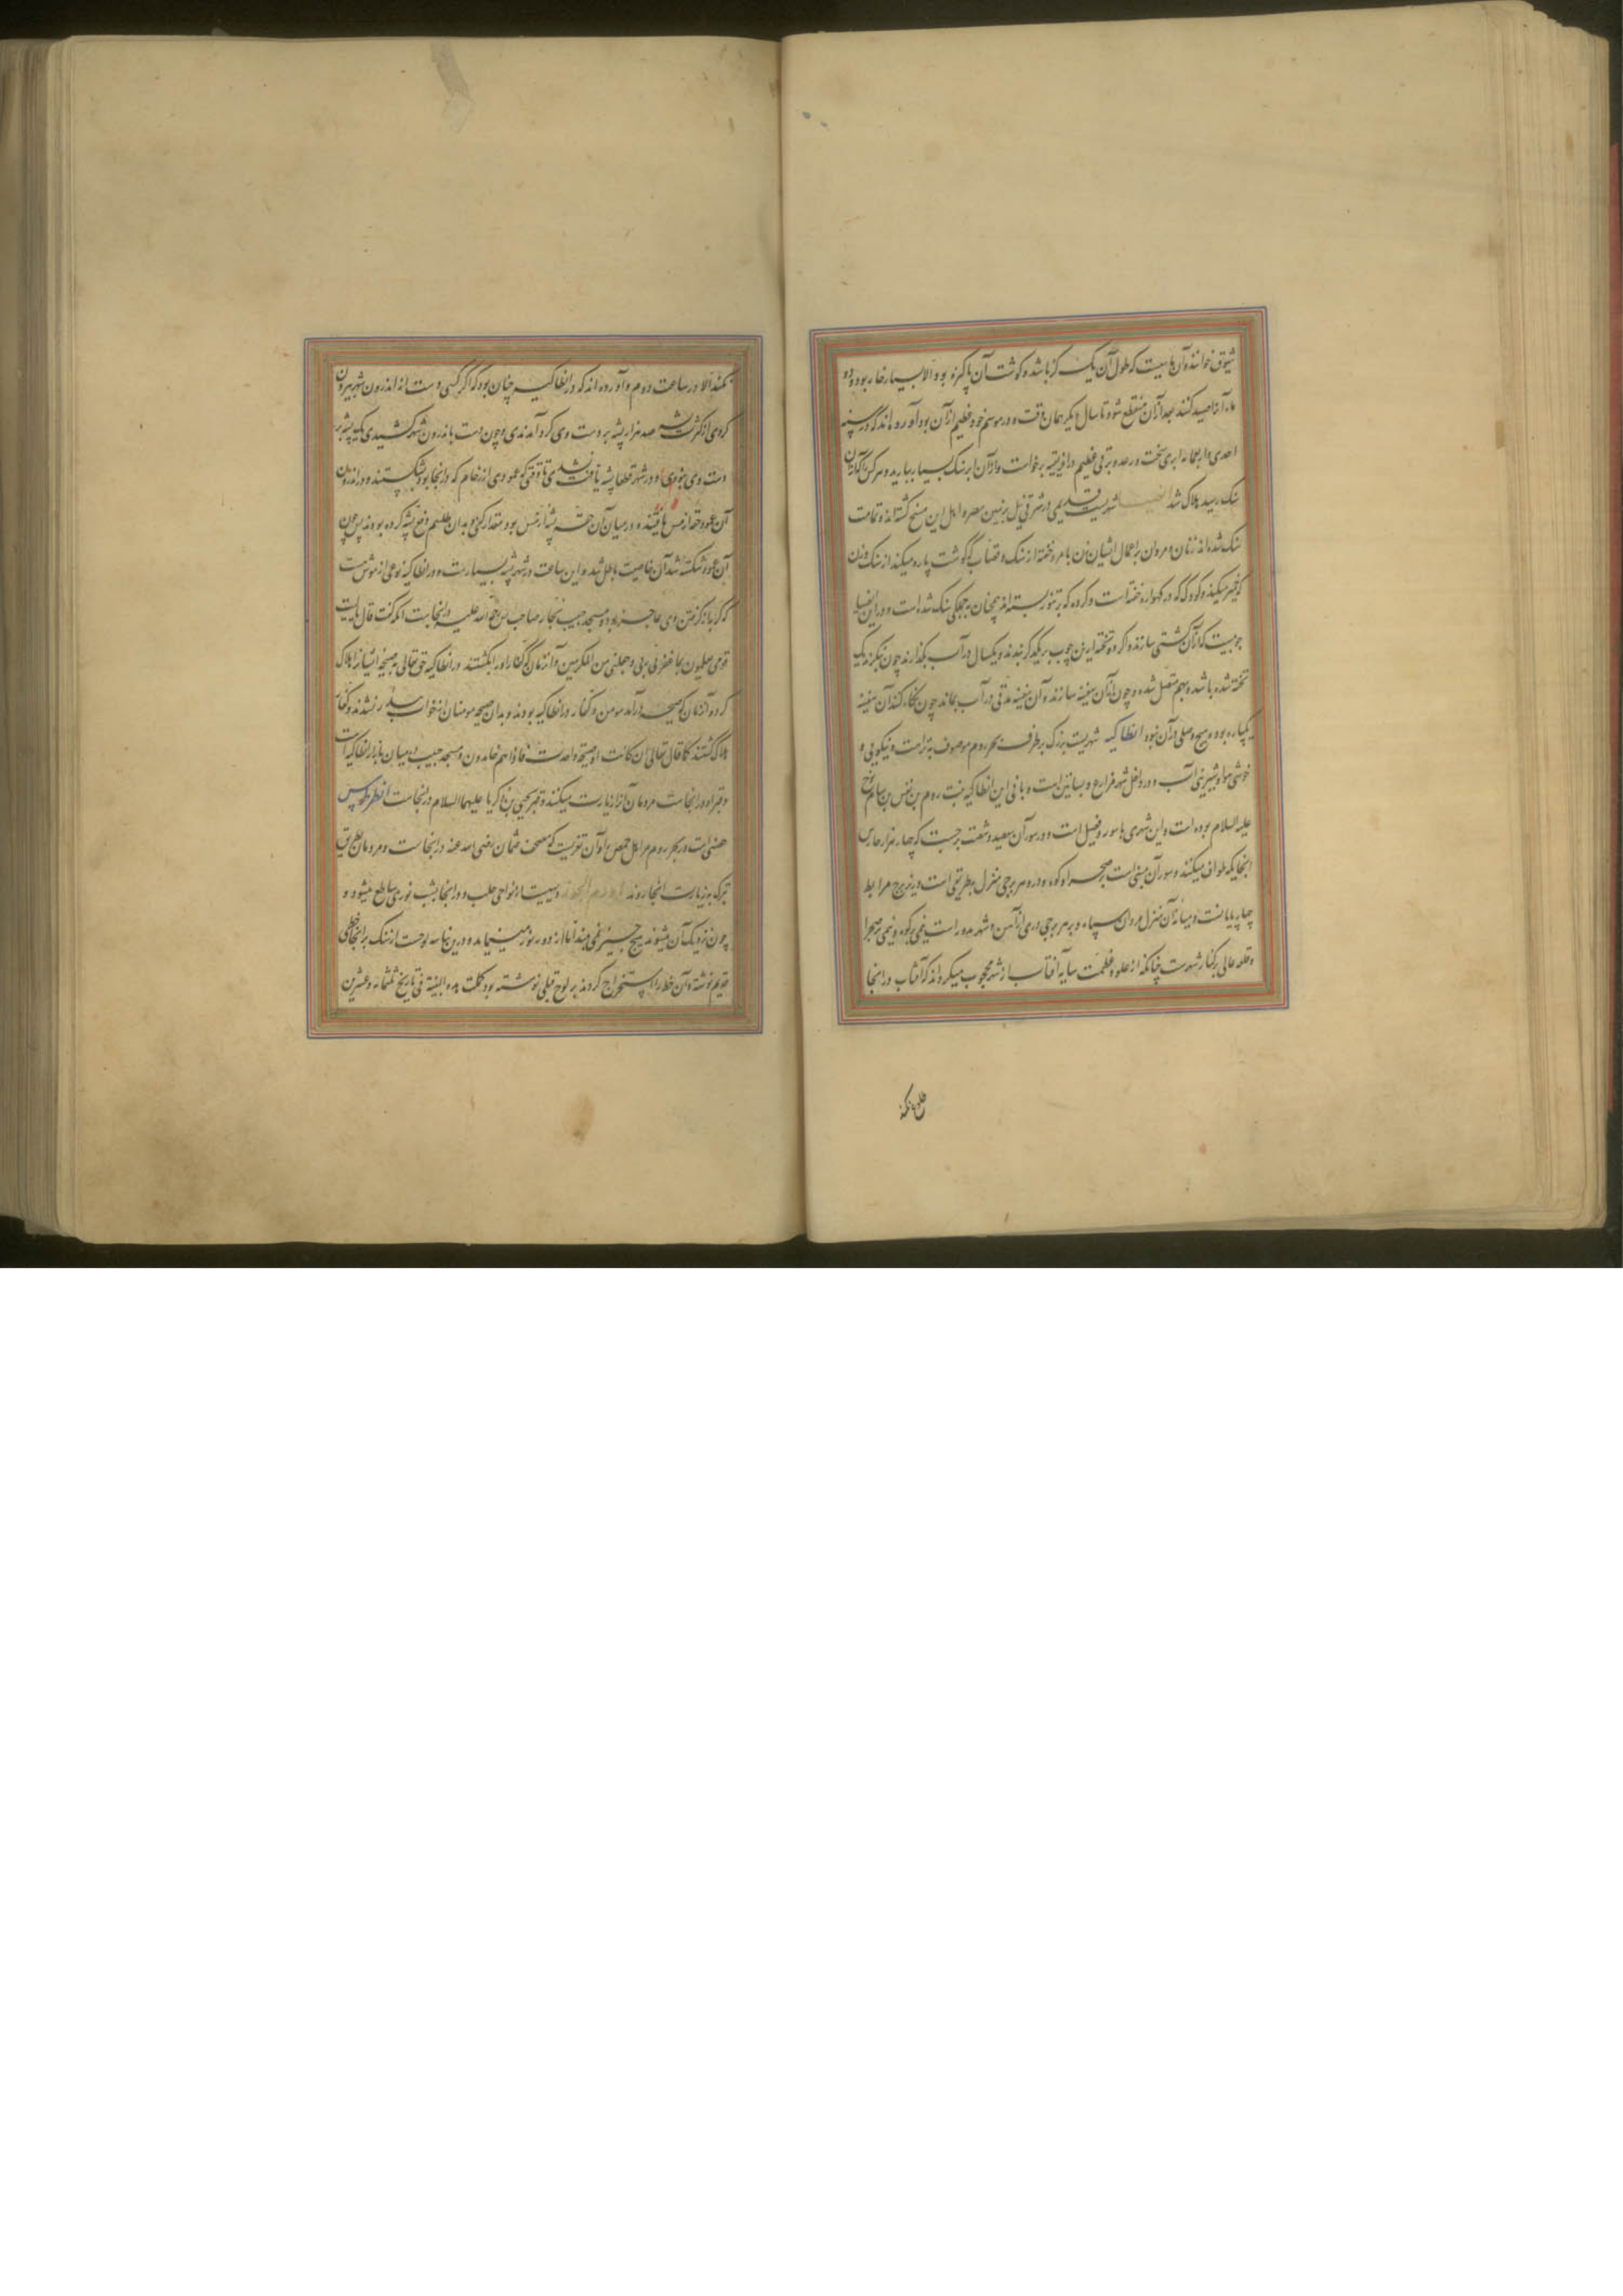 شیوق خوانند و آن ماهیست که طول آن یک گز باشد و گوشت آن پاکیزه بود الا بسیار خار بود و دو
ماه آنرا صید کنند بعد از آن منقطع شود تا سال دیگر همان وقت و در موسم خود عظیم ارزان بود آورده‌اند که در سنه
احدی و اربعمائه ابری سخت و رعد و برقی عظیم در افریقیه برخواست و از آن ابر سنک بسیار ببارید و هر کس را که از آن
سنک رسید هلاک شد انصنا شهریست قدیمی در شرقی نیل بزمین مصر و اهل این مسخ گشته‌اند و تمامت
سنک شده‌اند زنان و مردان بر اعمال ایشان زن با مرد خفته از سنک و قصاب که گوشت پاره میکند از سنک و زن
که خمیر میکند و کودک که در گهواره خفته است و گرده که بر تنور بسته‌اند همچنان بجملگی سنک شده است و در این انصنا
چوبیست که از آن کشتی سازند و اگر دو تخته ازین چوب بر یکدیگر بندند و یکسال در آب بگذارند چون بنگرند یک
تخته شده باشد و بهم متصل شده و چون از آن سفینه سازند و آن سفینه مدتی در آب بماند چون نگاه کنند آن سفینه
یکپاره بود و هیچ وصلی در آن نبود انطاکیه شهریست بزرک بر طرف بحر روم موصوف به نزاهت و نیکویی و
خوشی هوا و شیرینی آب و در داخل شهر مزارع و بساتین است و بانی این انطاکیه بنت روم بن نفس بن سام نوح
علیه السلام بوده است و این شهری با سور و فصیل است و در سور آن سیصد و شصت برجست که چهار هزار حارس
انجایکه طوافی میکنند و سور آن مبنی است بر صحرا و کوه و در هر برجی منزل بطریقی است و زیر برج مرابط
چهارپایانست و میانه آن منزل مردان سپاه و بر هر برجی دری از آهن و شهر مدور است نیمی بر کوه و نیمی بر صحرا
و قلعه عالی بر کنار شهرست چنانکه از علو و عظمت سایه آفتاب از شهر محجوب میگرداند که آفتاب در انجا
طلوع نکند
نکند الا در ساعت دوم و آورده‌اند که در انطاکیه چنان بود که اگر کسی دست از اندرون شهر بیرون
کردی از کثرت پشه صد هزار پشه بر دست وی گرد آمدندی و چون دست باندرون شهر کشیدی یک پشه بر
دست وی نبودی و در شهر قطعا پشه یافت نشدی تا وقتی که عمودی از رخام که در انجا بود بشکستند و در اندرون
آن عمود حقه از مس یافتند و در میان آن حقه پشه از مس بود مقدار کفی و بدان طلسم دفع پشه کرده بودند پس چون
آن عمود شکسته شد آن خاصیت باطل شد و این ساعت در شهر پشه بسیارست و در انطاکیه نوعی از موش هست
که گربه از گرفتن وی عاجز بود و مسجد حبیب نجار صاحب یس رحمة الله علیه در انجا ست انکه گفت قال یا لیت
قومی یعلمون بما غفر لی ربی و جعلنی من المکرمین و آن زمان که کفار او را بکشتند در انطاکیه حق تعالی بصیحه ایشانرا هلاک
کرد و آن زمان که صیحه درآمد مومن و کفار در انطاکیه بودند و بدان صیحه مومنان از خواب بیدار نشدند و کفار
هلاک گشتند کما قال تعالی ان کانت الا صیحة واحدة فاذا هم خامدون و مسجد حبیب در میان بازار انطاکیه است
و قبر او در انجا ست مردمان آنرا زیارت میکنند و قبر یحیی بن زکریا علیهما السلام در انجا ست انطرطوس
حصنی است در بحر روم مر اهل حمص را و آن ثغریست که مصحف عثمان رضی الله عنه در انجا ست و مردمان بطریق
تبرک بزیارت انجا روند اورم الجوز دیهیست از نواحی حلب و در انجا بشب نوری ساطع میشود و
چون نزدیک آن میشوند هیچ چیز نمی‌بینند اما از دور نور مینماید و درین بنا سه لوحست از سنک بر انجا خطی
قدیم نوشته و آن خط را استخراج کردند بر لوح قبلی نوشته بود کملت هذه البنیة فی تاریخ ثلثمائه و عشرین